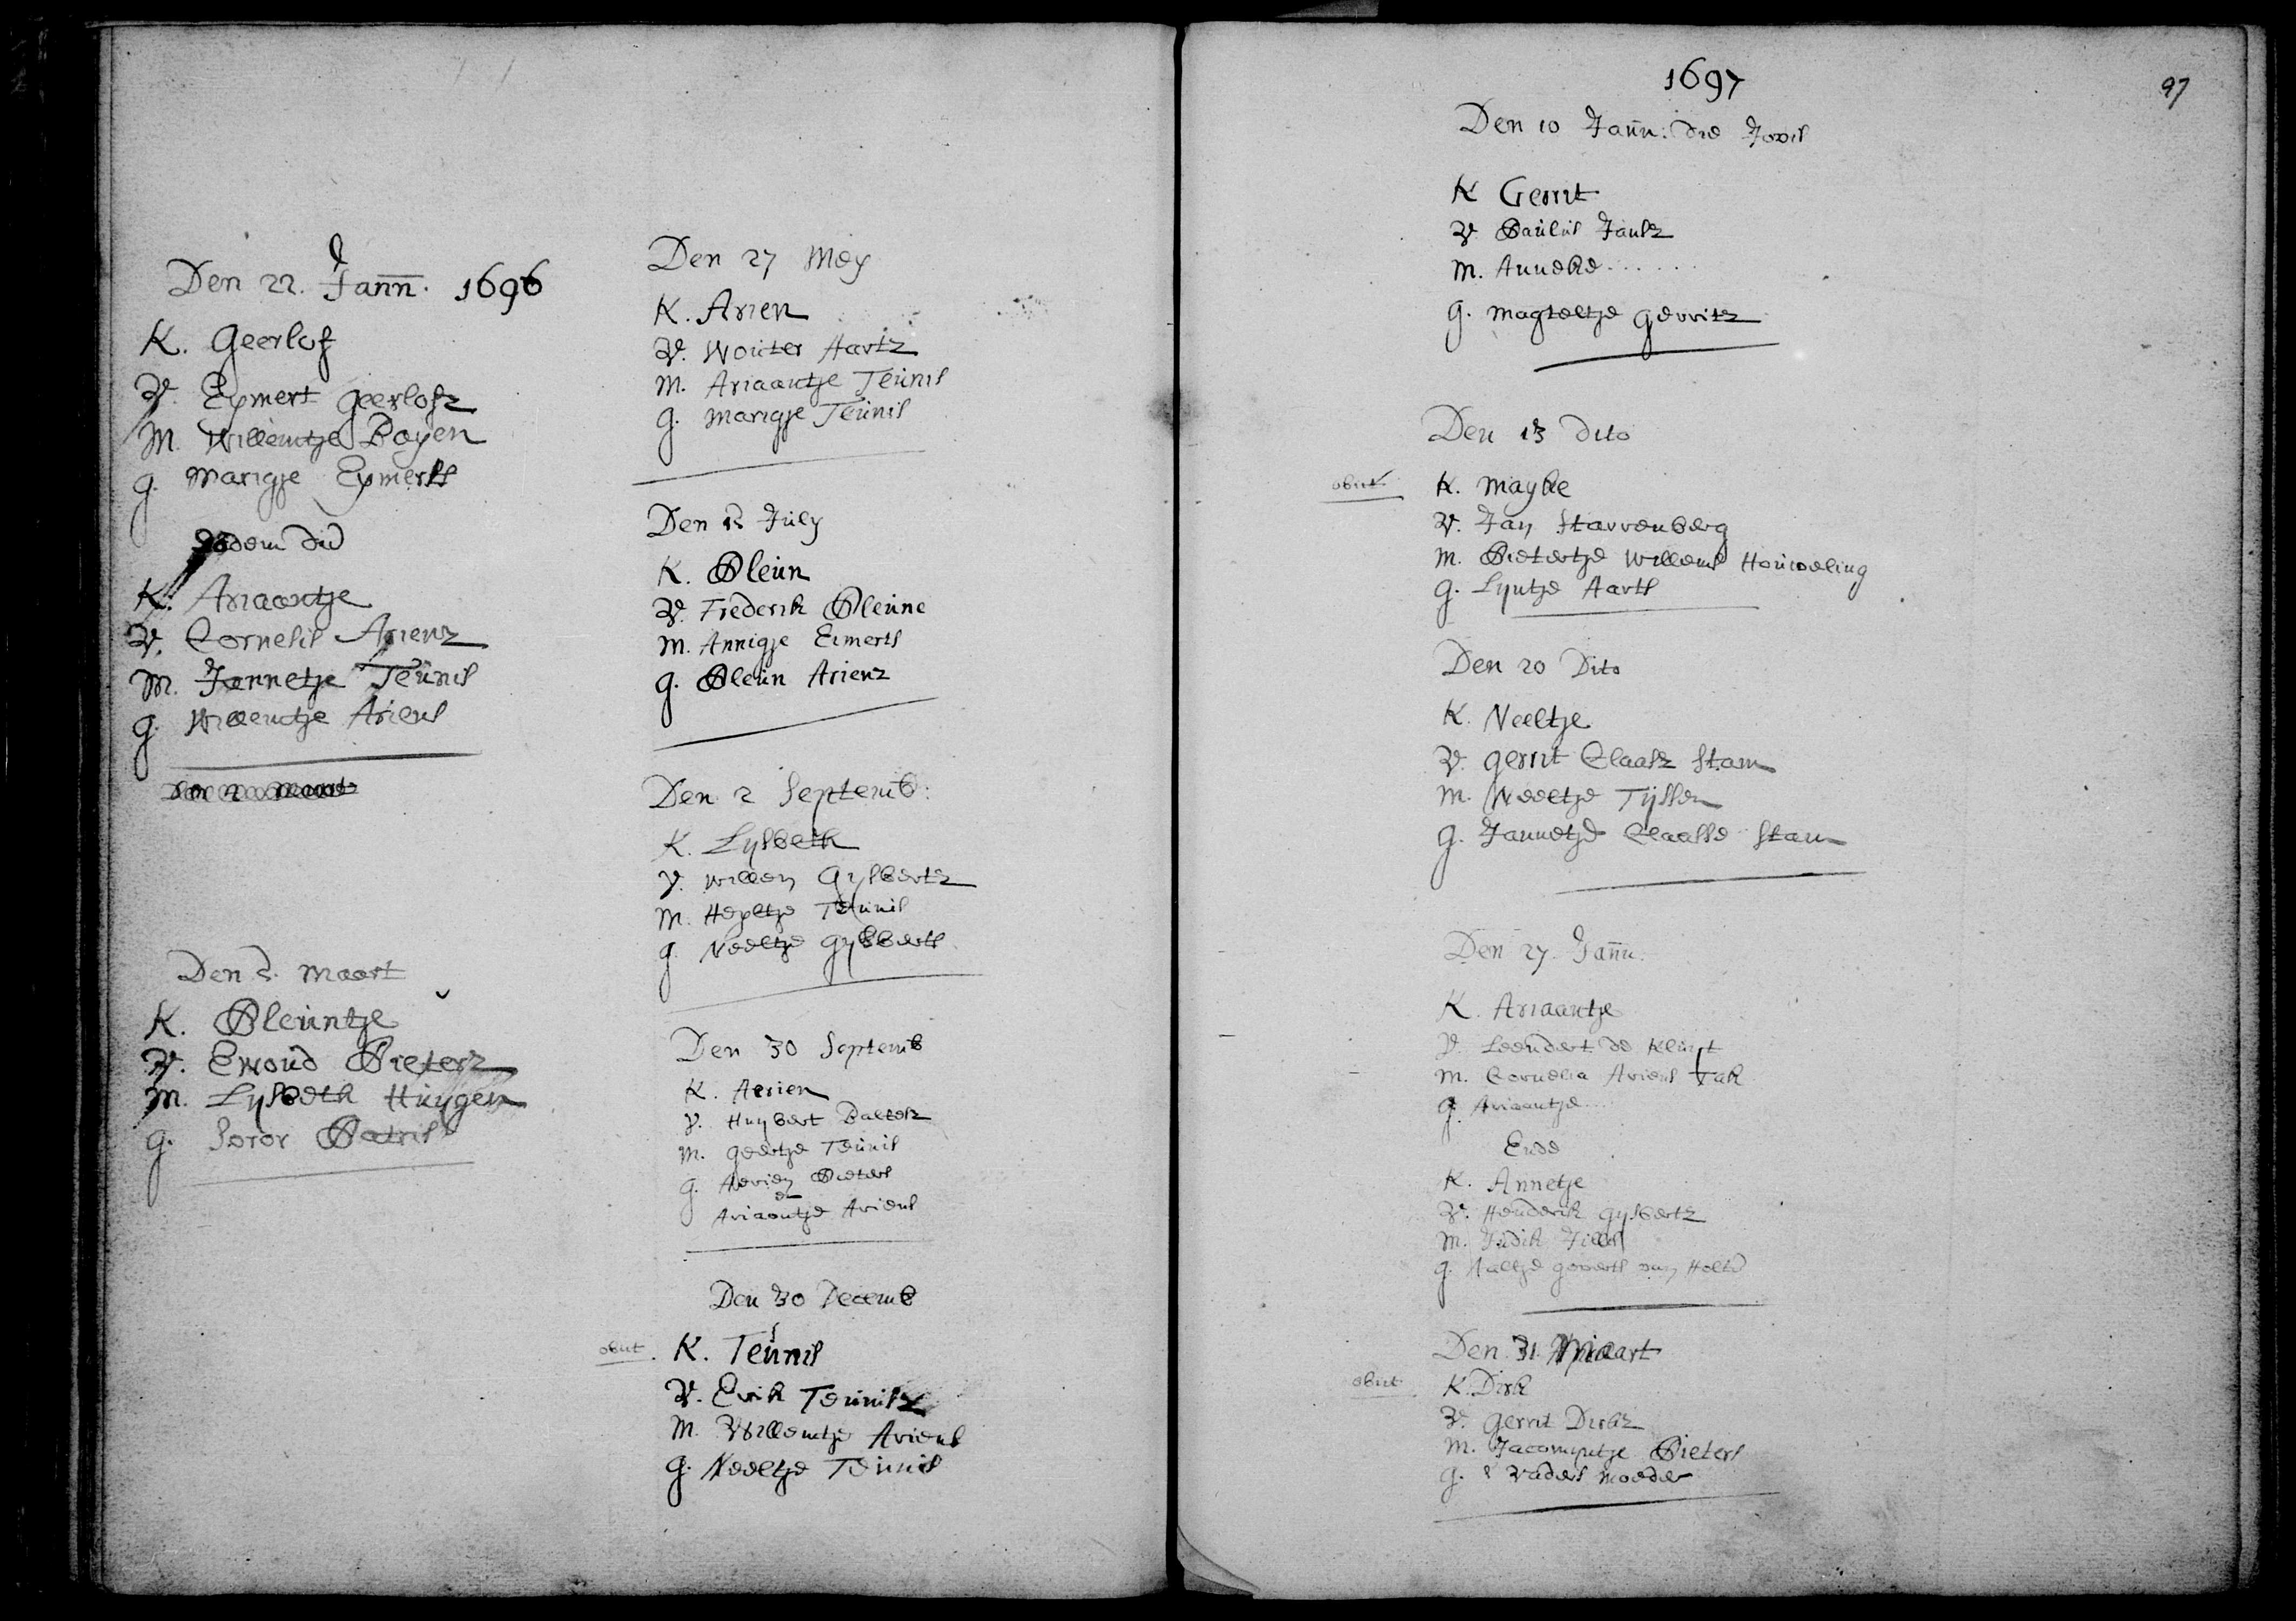 Den 22. Jann. 1696
K. Geerlof
V. Eymert Geerlofz
M. Willemtje Boyen
G. Marigje Eymerts
Eodem die
K. Ariaantje
V. Cornelis Arienz
M. Jannetje Teünis
G. Willemtje Ariens
Den 2 Maart
Den 2. Maart
K. Pleüntje
V. Ewoud Pieterz
M. Lysbeth Hüÿgen
G. Soror Patris
Den 27 Mey
K. Arien
V. Woüter Aartz
M. Ariaantje Teünis
G. Marigje Teünis
Den 12 Jüly
K. Pleün
V. Frederik Pleüne
M. Annigje Eimerts
G. Pleün Arienz
Den 2 Septemb:
K. Lysbeth
V. Willem Gysbertz
M. Heyltje Teünis
G. Neeltje Gysberts
Den 30 Septemb
K. Aerien
V. Huybert Balterz
M. Geertje Teünis
G. Aerien Pieters
en
Ariaantje Ariens
Den 30 Decemb
obiit. K. Teünis
V. Erik Teünisz
M. Willemtje Ariens
G. Neeltje Teünis
1697
97
Den 10 Jann: die Jovis
K Gerrit
V. Paülüs Jansz
M. Anneke......
G. Magteltje Gerritz
Den 13 Dito
obiit K. Mayke
V. Jan Starrenberg
M. Pietertje Willems Hoüweling
G. Lyntje Aarts
Den 20 Dito
K. Neeltje
V. Gerrit Claasz Stam
M. Neeltje Tijssen
G. Jannetje Claasse Stam
Den 27. Jann.
K. Ariaantje
V. Leendert de
M. Cornelia Ariens Tak
G. Ariaantje....
Ende
K. Annetje
V. Henderik Gysbertz
M. Jüdik Jilles
G. Aaltje Goverts van
Den 31 Maart
obiit K. Dirk
V. Gerrit Dirkz
M. Jacomyntje Pieters
G. s Vaders Moeder